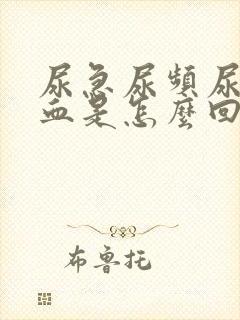 尿急尿頻尿
血是怎麼回
布魯托